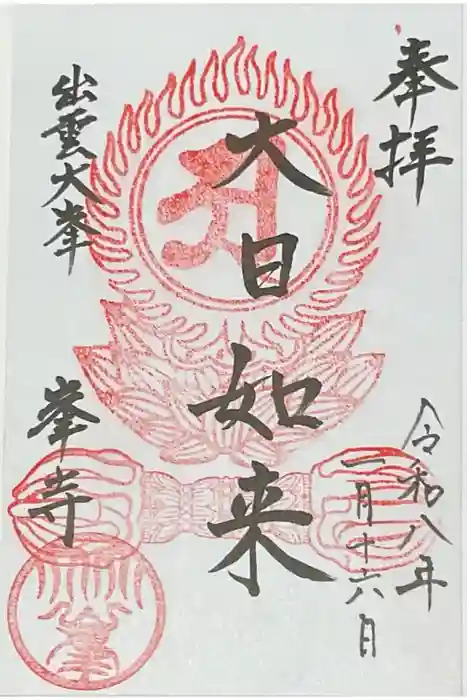 奉拝
令和八年
一月十六日
大日如来
出雲大峯
峯寺